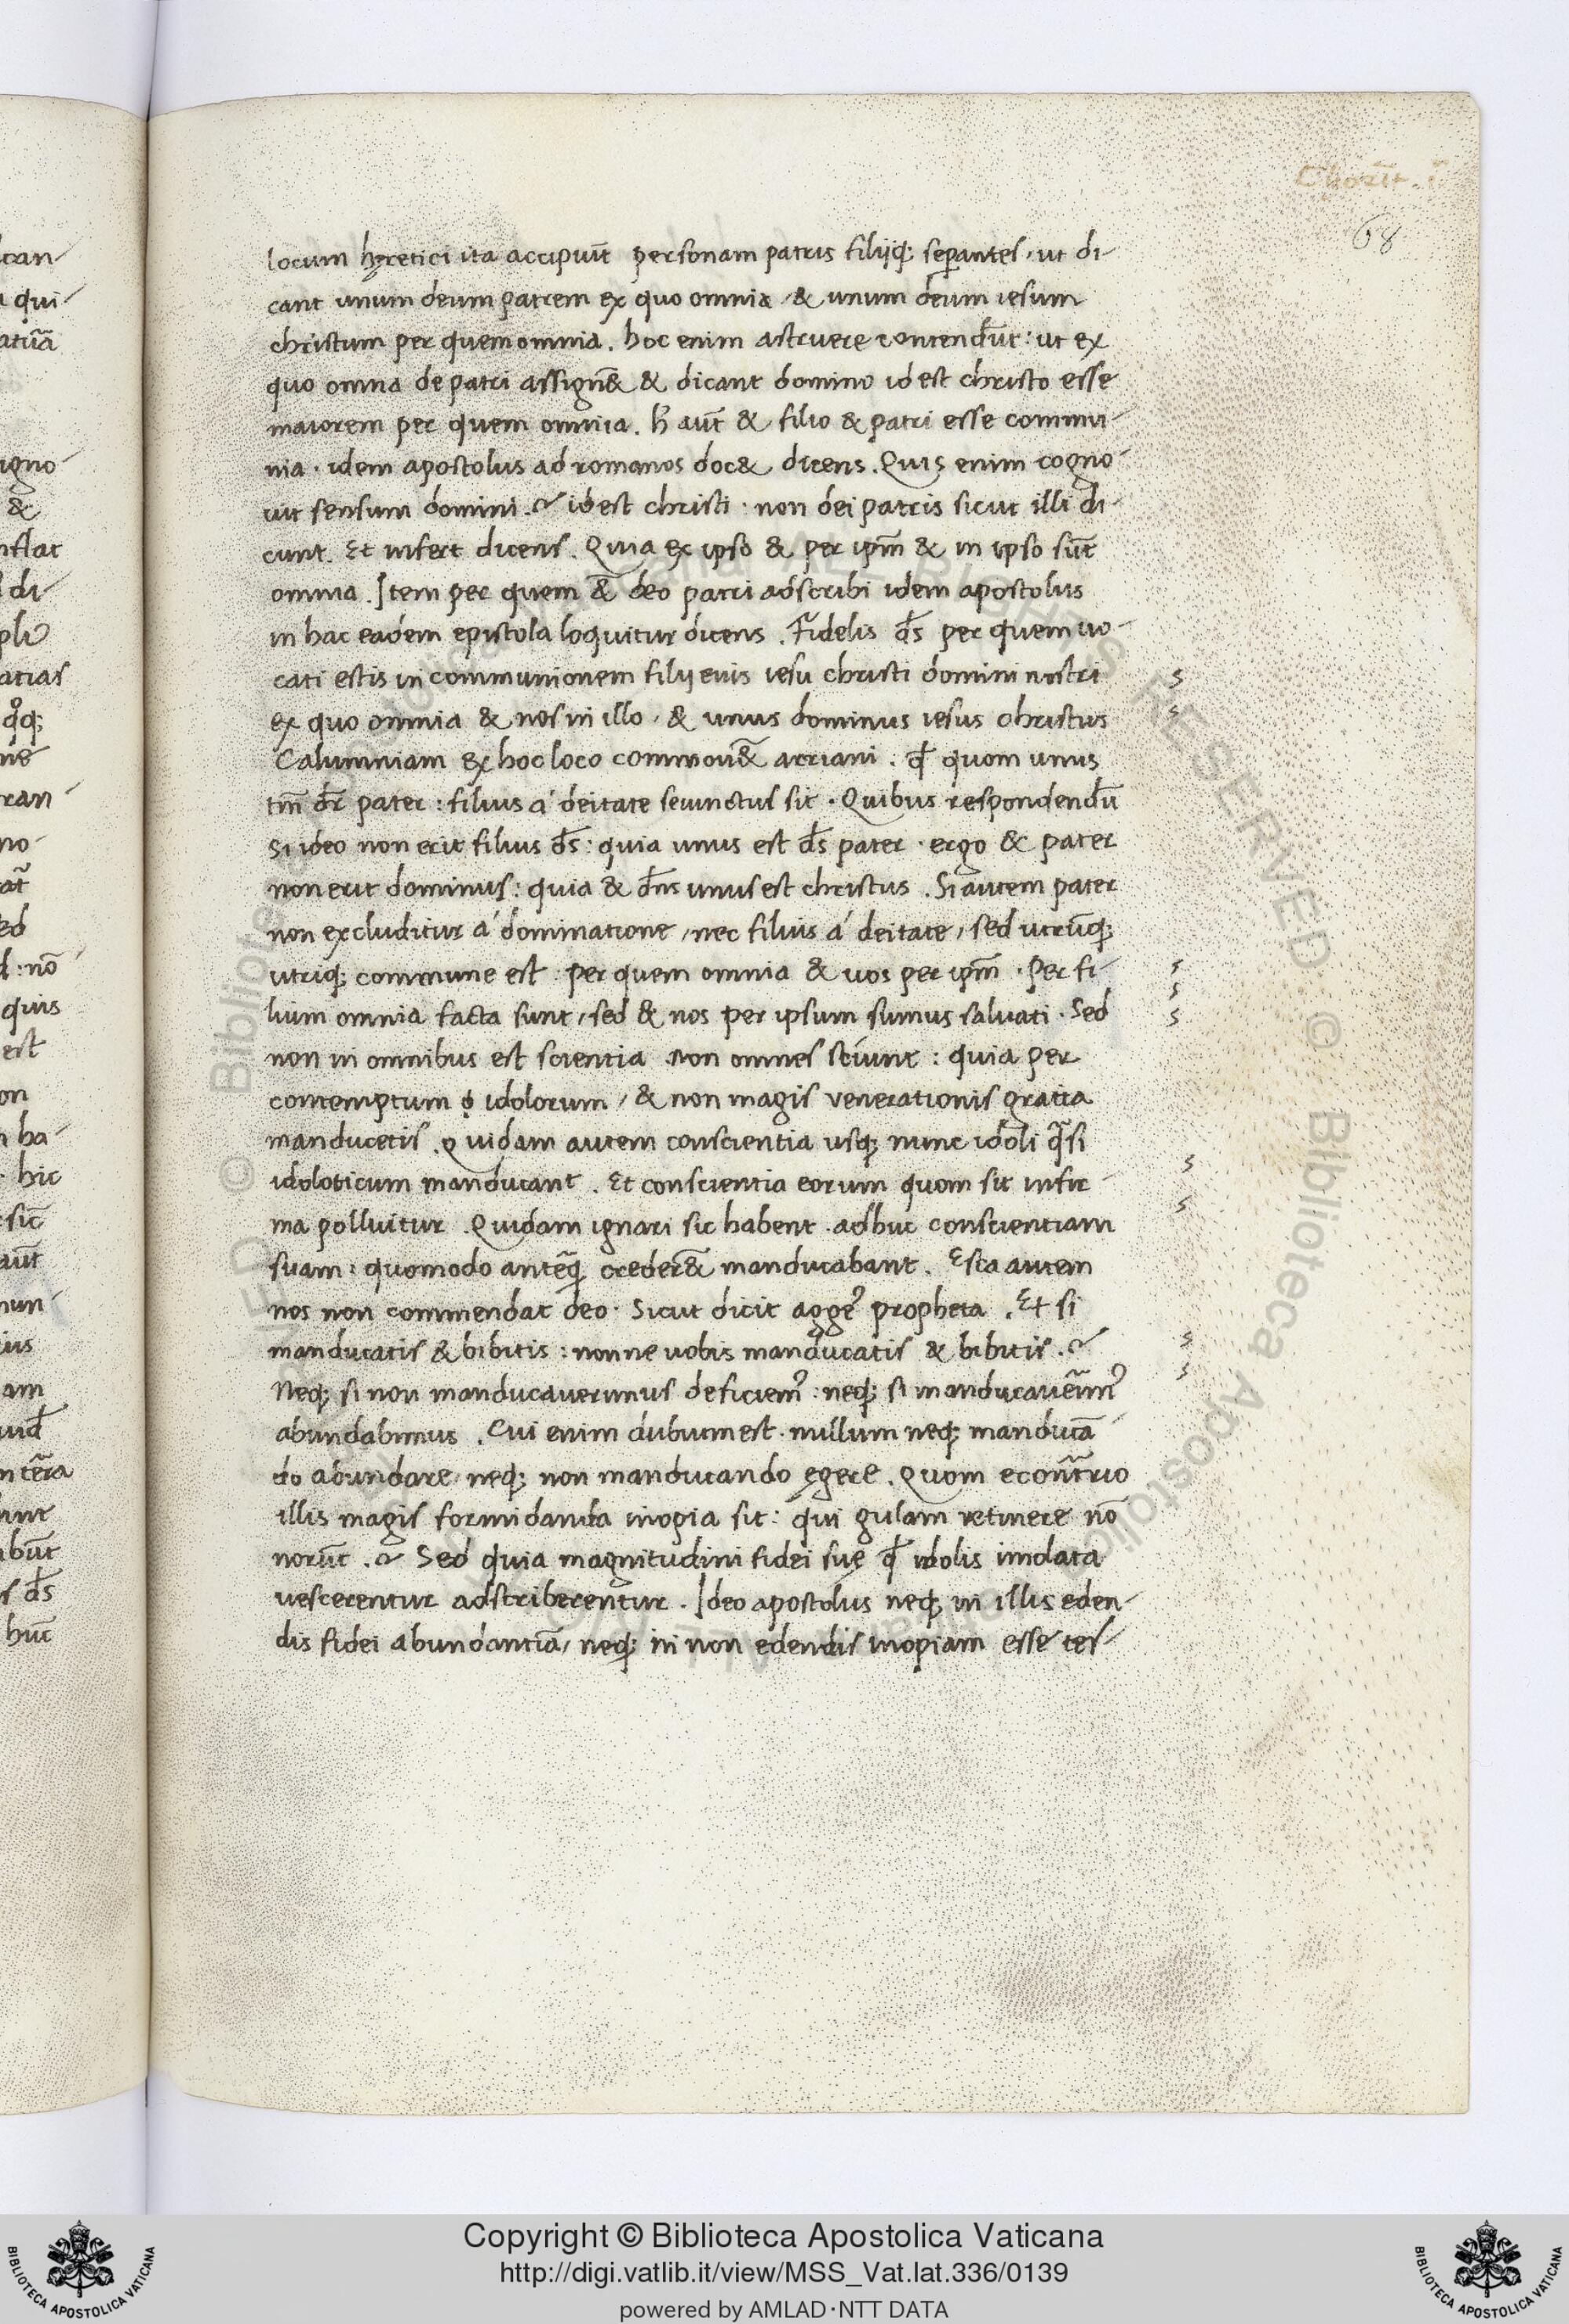 Chorīt. i
68
locum hęretici ita accipiūt personam patris filijq; seperantes, ut di-
cant unum deum patrem ex quo omnia, & unum deum iesum
christum per quem omnia. hoc enim astruere contendūt: ut ex
quo omnia de patri assign&̄ & dicant domino id est christo esse
maiorem per quem omnia. h̄ aūt & filio & patri esse commu-
nia. idem apostolus ad romanos doc& dicens. Quis enim cogno-
uit sensum domini.? id est christi. non dei patris sicut illi di-
cunt. Et infert dicens. Quia ex ipso & per ip̄m & in ipso sūt
omnia. Item per quem &̄ deo patri adscribi idem apostolus
in hac eadem epistola loquitur dicens. Fidelis d̄s per quem uo-
cati estis in communionem filij eius iesu christi domini nostri
ex quo omnia & nos in illo, & unus dominus iesus christus
Calumniam ex hoc loco commou&̄ arriani: q̄ quom unus
tm̄ dr̄ pater: filius á deitate seiunctus sit. Quibus respondendū
Si ideo non erit filius d̄s: quia unus est d̄s pater. ergo & pater
non erit dominus: quia & dn̄s unus est christus. Si autem pater
non excluditur á dominatione, nec filius á deitate, sed utrūq;
utriq; commune est. per quem omnia & uos per ip̄m. Per fi-
lium omnia facta sunt, sed & nos per ipsum sumus saluati. Sed
non in omnibus est scientia. Non omnes sciunt: quia per
contemptum idolorum, & non magis venerationis gratia
manducetis. Quidam autem conscientia usq; nunc idoli q̄si
idoloticum manducant. Et conscientia eorum quom sit infir-
ma polluitur. Quidam ignari sic habent. adhuc conscientiam
suam: quomodo anteq̄ creder&̄ manducabant. Esca autem
nos non commendat deo. Sicut dicit agge9 propheta. Et si
manducatis & bibitis: nonne uobis manducatis & bibitis.?
Neq; si non manducauerimus deficiem9: neq; si manducauēim9
abundabimus. Cui enim dubium est. nullum neq; manducā-
do abundare, neq; non manducando ęgere. Quom econt̄rio
illis magis formidanda inopia sit: qui gulam retinere nō
norūt.? Sed quia magnitudini fidei suę q̄ idolis imolata
uescerentur adscriberentur. Ideo apostolus neq; in illis eden-
dis fidei abundantiā, neq; in non edendis inopiam esse tes-
Copyright © Biblioteca Apostolica Vaticana
http://digi.vatlib.it/view/MSS_Vat.lat.336/0139
powered by AMLAD·NTT DATA